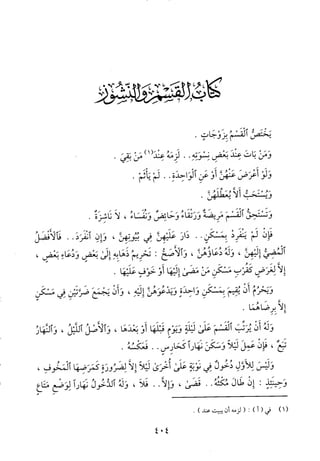 كتاب القسم والنشوز
يَخْتَصُّ الْقَسْمُ بِزَوْجَاتٍ .
وَمَنْ بَاتَ عِنْدَ بَعْضِ نِسْوَتِهِ.. لَزِمَهُ عِنْدَ(١) مَنْ بَقِيَ .
وَلَوْ أَعْرَضَ عَنْهُنَّ أَوْ عَنِ الْوَاحِدَةِ.. لَمْ يَأْثَمْ .
وَيُسْتَحَبُّ أَلَّا يُعَطِّلَهُنَّ .
وَتَسْتَحِقُّ الْقَسْمَ مَرِيضَةٌ وَرَتْقَاءُ وَحَائِضٌ وَنُفَسَاءُ ، لَا نَاشِزَةٌ .
فَإِنْ لَمْ يَنْفَرِدْ بِمَسْكَنٍ.. دَارَ عَلَيْهِنَّ فِي بُيُوتِهِنَّ ، وَإِنِ انْفَرَدَ.. فَالْأَفْضَلُ
الْمُضِيُّ إِلَيْهِنَّ ، وَلَهُ دُعَاؤُهُنَّ ، وَالْأَصَحُّ : تَحْرِيمُ ذَهَابِهِ إِلَى بَعْضٍ وَدُعَاءِ بَعْضٍ ،
إِلَّا لِغَرَضٍ كَقُرْبِ مَسْكَنِ مَنْ مَضَى إِلَيْهَا أَوْ خَوْفٍ عَلَيْهَا .
وَيَحْرُمُ أَنْ يُقِيمَ بِمَسْكَنِ وَاحِدَةٍ وَيَدْعُوَهُنَّ إِلَيْهِ ، وَأَنْ يَجْمَعَ ضَرَّتَيْنِ فِي مَسْكَنٍ
إِلَّا بِرِضَاهُمَا .
وَلَهُ أَنْ يُرَتِّبَ الْقَسْمَ عَلَى لَيْلَةٍ وَيَوْمٍ قَبْلَهَا أَوْ بَعْدَهَا ، وَالْأَصْلُ اللَّيْلُ ، وَالنَّهَارُ
تَبَعٌ ، فَإِنْ عَمِلَ لَيْلاً وَسَكَنَ نَهَاراً كَحَارِسٍ.. فَعَكْسُهُ .
وَلَيْسَ لِلْأَوَّلِ دُخُولٌ فِي نَوْبَةٍ عَلَى أُخْرَى لَيْلاً إِلَّا لِضَرُورَةٍ كَمَرَضِهَا الْمَخُوفِ ،
وَحِينَئِذٍ : إِنْ طَالَ مُكْثُهُ.. قَضَى ، وَإِلَّا.. فَلَا ، وَلَهُ الدُّخُولُ نَهَاراً لِوَضْعِ مَتَاعٍ
(١) في (أ) : ( لزمه أن يبيت عند ) .
٤٠٤